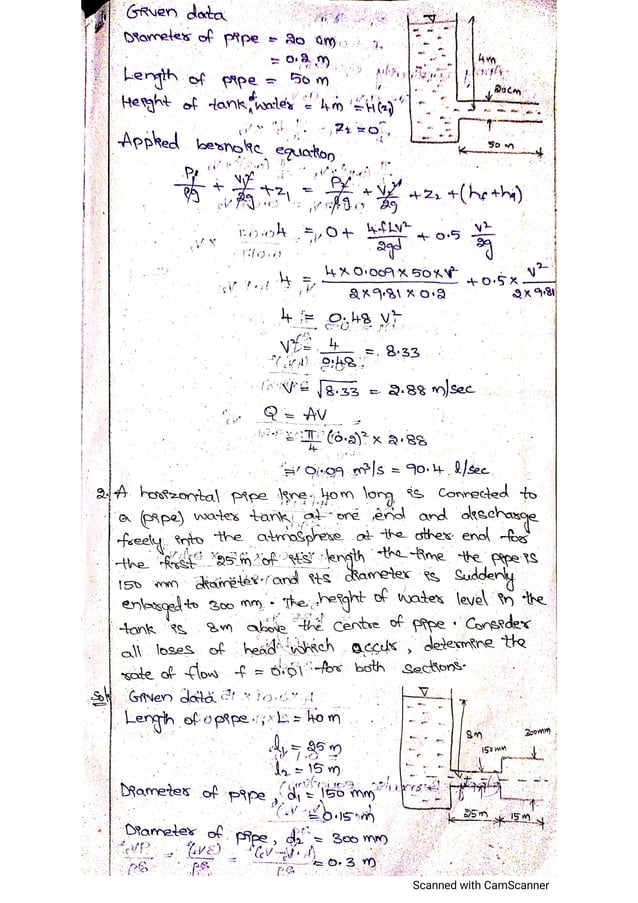 Given data
Diameter of pipe = 20 cm
= 0.2 m
Length of pipe = 50 m
Height of tank water = 4m = H(z1)
Z2 = 0
4m
20cm
50 m
Applied bernolic equation
P1/ρg + V1²/2g + Z1 = P2/ρg + V2²/2g + Z2 + (hf + hi)
4 = 0 + 4fLV²/2gd + 0.5 V²/2g
4 = 4×0.009×50×V²/2×9.81×0.2 + 0.5 × V²/2×9.81
4 = 0.48 V²
V² = 4/0.48 = 8.33
V = √8.33 = 2.88 m/sec
Q = AV
= π/4 (0.2)² × 2.88
= 0.09 m³/s = 90.4 l/sec
2. A horizontal pipe line 40m long is connected to
a (pipe) water tank at one end and discharge
freely into the atmosphere at the other end for
the first 25m of its length the time the pipe is
150 mm diameter and its diameter is suddenly
enlarged to 300 mm. The height of water level in the
tank is 8m above the centre of pipe. Consider
all loses of head which occur, determine the
rate of flow f = 0.01 for both sections.
Sol Given data
Length of pipe, L = 40 m
l1 = 25 m
l2 = 15 m
Diameter of pipe, d1 = 150 mm
= 0.15 m
Diameter of pipe, d2 = 300 mm
= 0.3 m
8m
150mm
300mm
25m
15m
Scanned with CamScanner